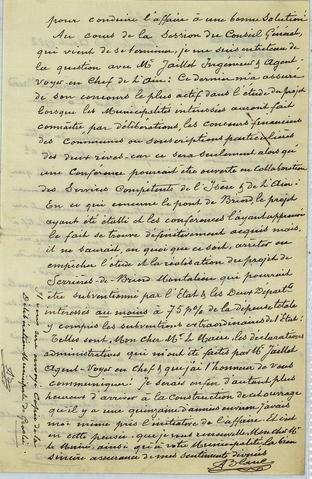 pour conduire l'affaire à une bonne solution.
Au cours de la Session du Conseil Général,
qui vient de se terminer, je me suis entretenu de
la question avec Mr Jaillot Ingénieur & Agent-
Voyer en Chef de l'Ain: Ce dernier m'a assuré
de son concours le plus actif dans l'étude du projet
lorsque les Municipalités intéressées auront fait
connaître par délibérations, les concours financiers
des Communes ou souscriptions particulières
des deux rives - car ce sera seulement alors qu'
une Conférence pourrait être ouverte en collaboration
des Services Compétents de l'Isère & de l'Ain:
En ce qui concerne le pont de Briord le projet
ayant été établi et les conférences l'ayant approuvé
le fait se trouve définitivement acquis mais,
il ne saurait, en quoi que ce soit, arrêter ou
empêcher l'étude et la réalisation du projet de
Serrières-de-Briord Montalieu qui pourrait
être subventionné par l'Etat & les Deux Départts
intéressés au moins à 75 p% de la dépense totale
y compris les subventions extraordinaires de l'Etat:
Telles sont, Mon Cher Mr le Maire, les déclarations
administratives qui m'ont été faites par Mr Jaillot
Agent-Voyer en Chef & que j'ai l'honneur de vous
communiquer: Je serais enfin d'autant plus
heureux d'arriver à la Construction de cet ouvrage
qu'il y a une quinzaine d'années environ j'avais
moi même pris l'initiative de l'affaire. Et c'est
en cette pensée que je vous renouvelle Mon cher Mr
le Maire, ainsi qu'à votre Municipalité, la bien
sincère assurance de mes sentiments dévoués
copie de la
Délibération Municipale de